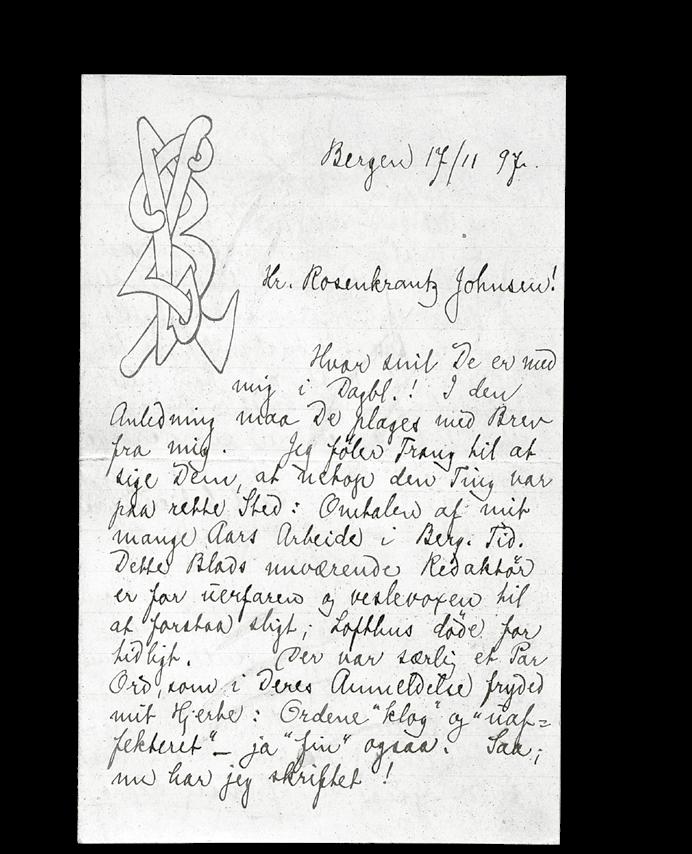 Bergen 17/11 97.
Hr. Rosenkrantz Johnsen!
Hvor snil De er med
mig i Dagbl.! I den
Anledning maa De plages med Brev
fra mig. Jeg føler Trang til at
sige Dem, at netop den Ting var
paa rette Sted: Omtalen af mit
mange Aars Arbeide i Berg. Tid.
Dette Blads nuværende Redaktør
er for uerfaren og veslevoxen til
at forstaa sligt; Lofthus døde for
tidligt. Der var særlig et Par
Ord, som i Deres Anmeldelse fryded
mit Hjerte: Ordene "klog" og "uaf=
fekteret" – ja "fin" ogsaa. Saa;
nu har jeg skriftet!